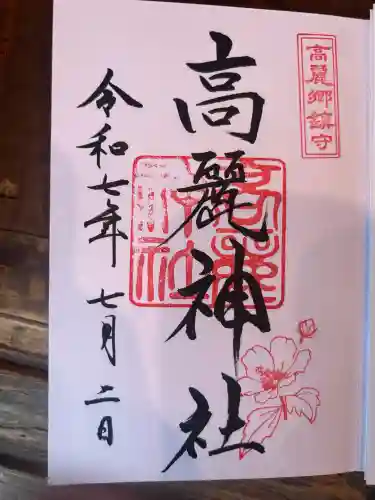 高麗郷鎮守
高麗神社
令和七年 七月 二日
高麗神社